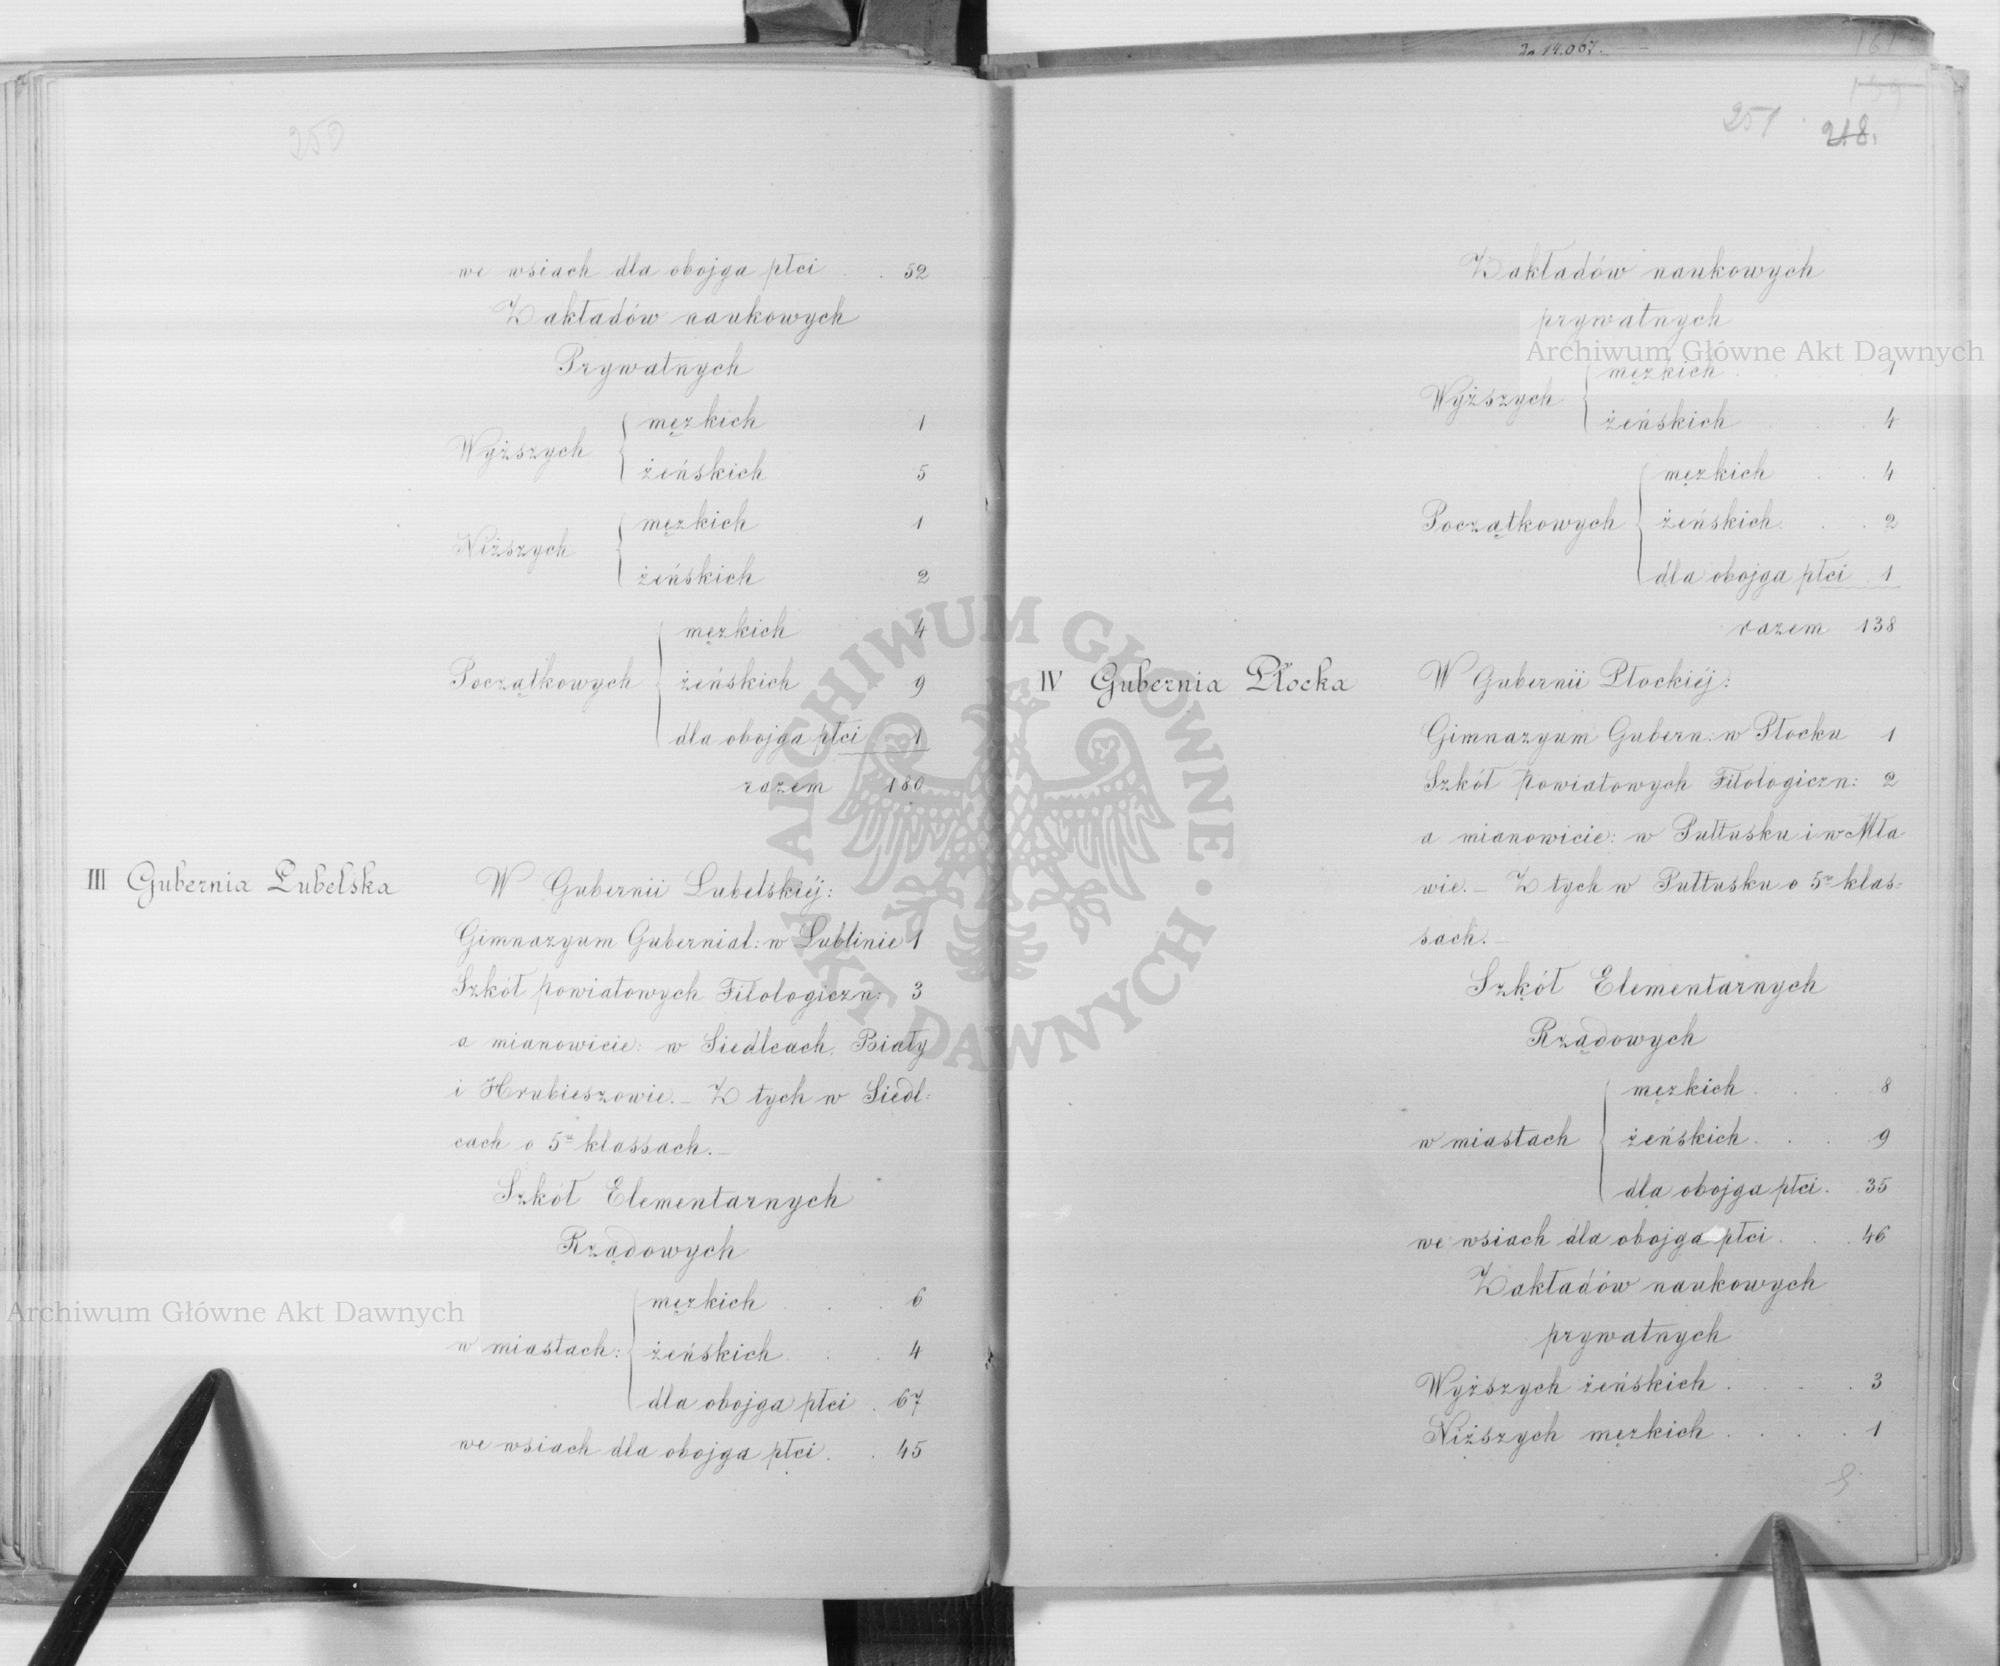 250
we wsiach dla obojga płci . . 52
Zakładów naukowych
Prywatnych
Wyższych { męzkich 1
żeńskich 5
Niższych { męzkich 1
żeńskich 2
Początkowych { męzkich 4
żeńskich 9
dla obojga płci 1
razem 180
III Gubernia Lubelska
W Gubernii Lubelskiéj:
Gimnazyum Gubernial: w Lublinie 1
Szkół powiatowych Filologiczn: 3
a mianowicie: w Siedlcach, Biały
i Hrubieszowie. – Z tych w Siedl-
cach o 5u klassach. –
Szkół Elementarnych
Rządowych
w miastach: { męzkich . . . 6
żeńskich . . . 4
dla obojga płci . 67
we wsiach dla obojga płci . . 45
Archiwum Główne Akt Dawnych
161
251
218.
Zakładów naukowych
prywatnych
Archiwum Główne Akt Dawnych
Wyższych { męzkich 1
żeńskich . . . 4
Początkowych { męzkich . . 4
żeńskich . . . 2
dla obojga płci . 1
razem 138
IV Gubernia Płocka
W Gubernii Płockiéj:
Gimnazyum Gubern: w Płocku 1
Szkół powiatowych Filologiczn: 2
a mianowicie: w Pułtusku i w Mła
wie. – Z tych w Pułtusku o 5u klas-
sach. –
Szkół Elementarnych
Rządowych
w miastach { męzkich . . . 8
żeńskich . . . 9
dla obojga płci . . 35
we wsiach dla obojga płci . . . 46
Zakładów naukowych
prywatnych
Wyższych żeńskich . . . . 3
Niższych męzkich . . . . 1
ARCHIWUM GŁÓWNE · AKT DAWNYCH ·